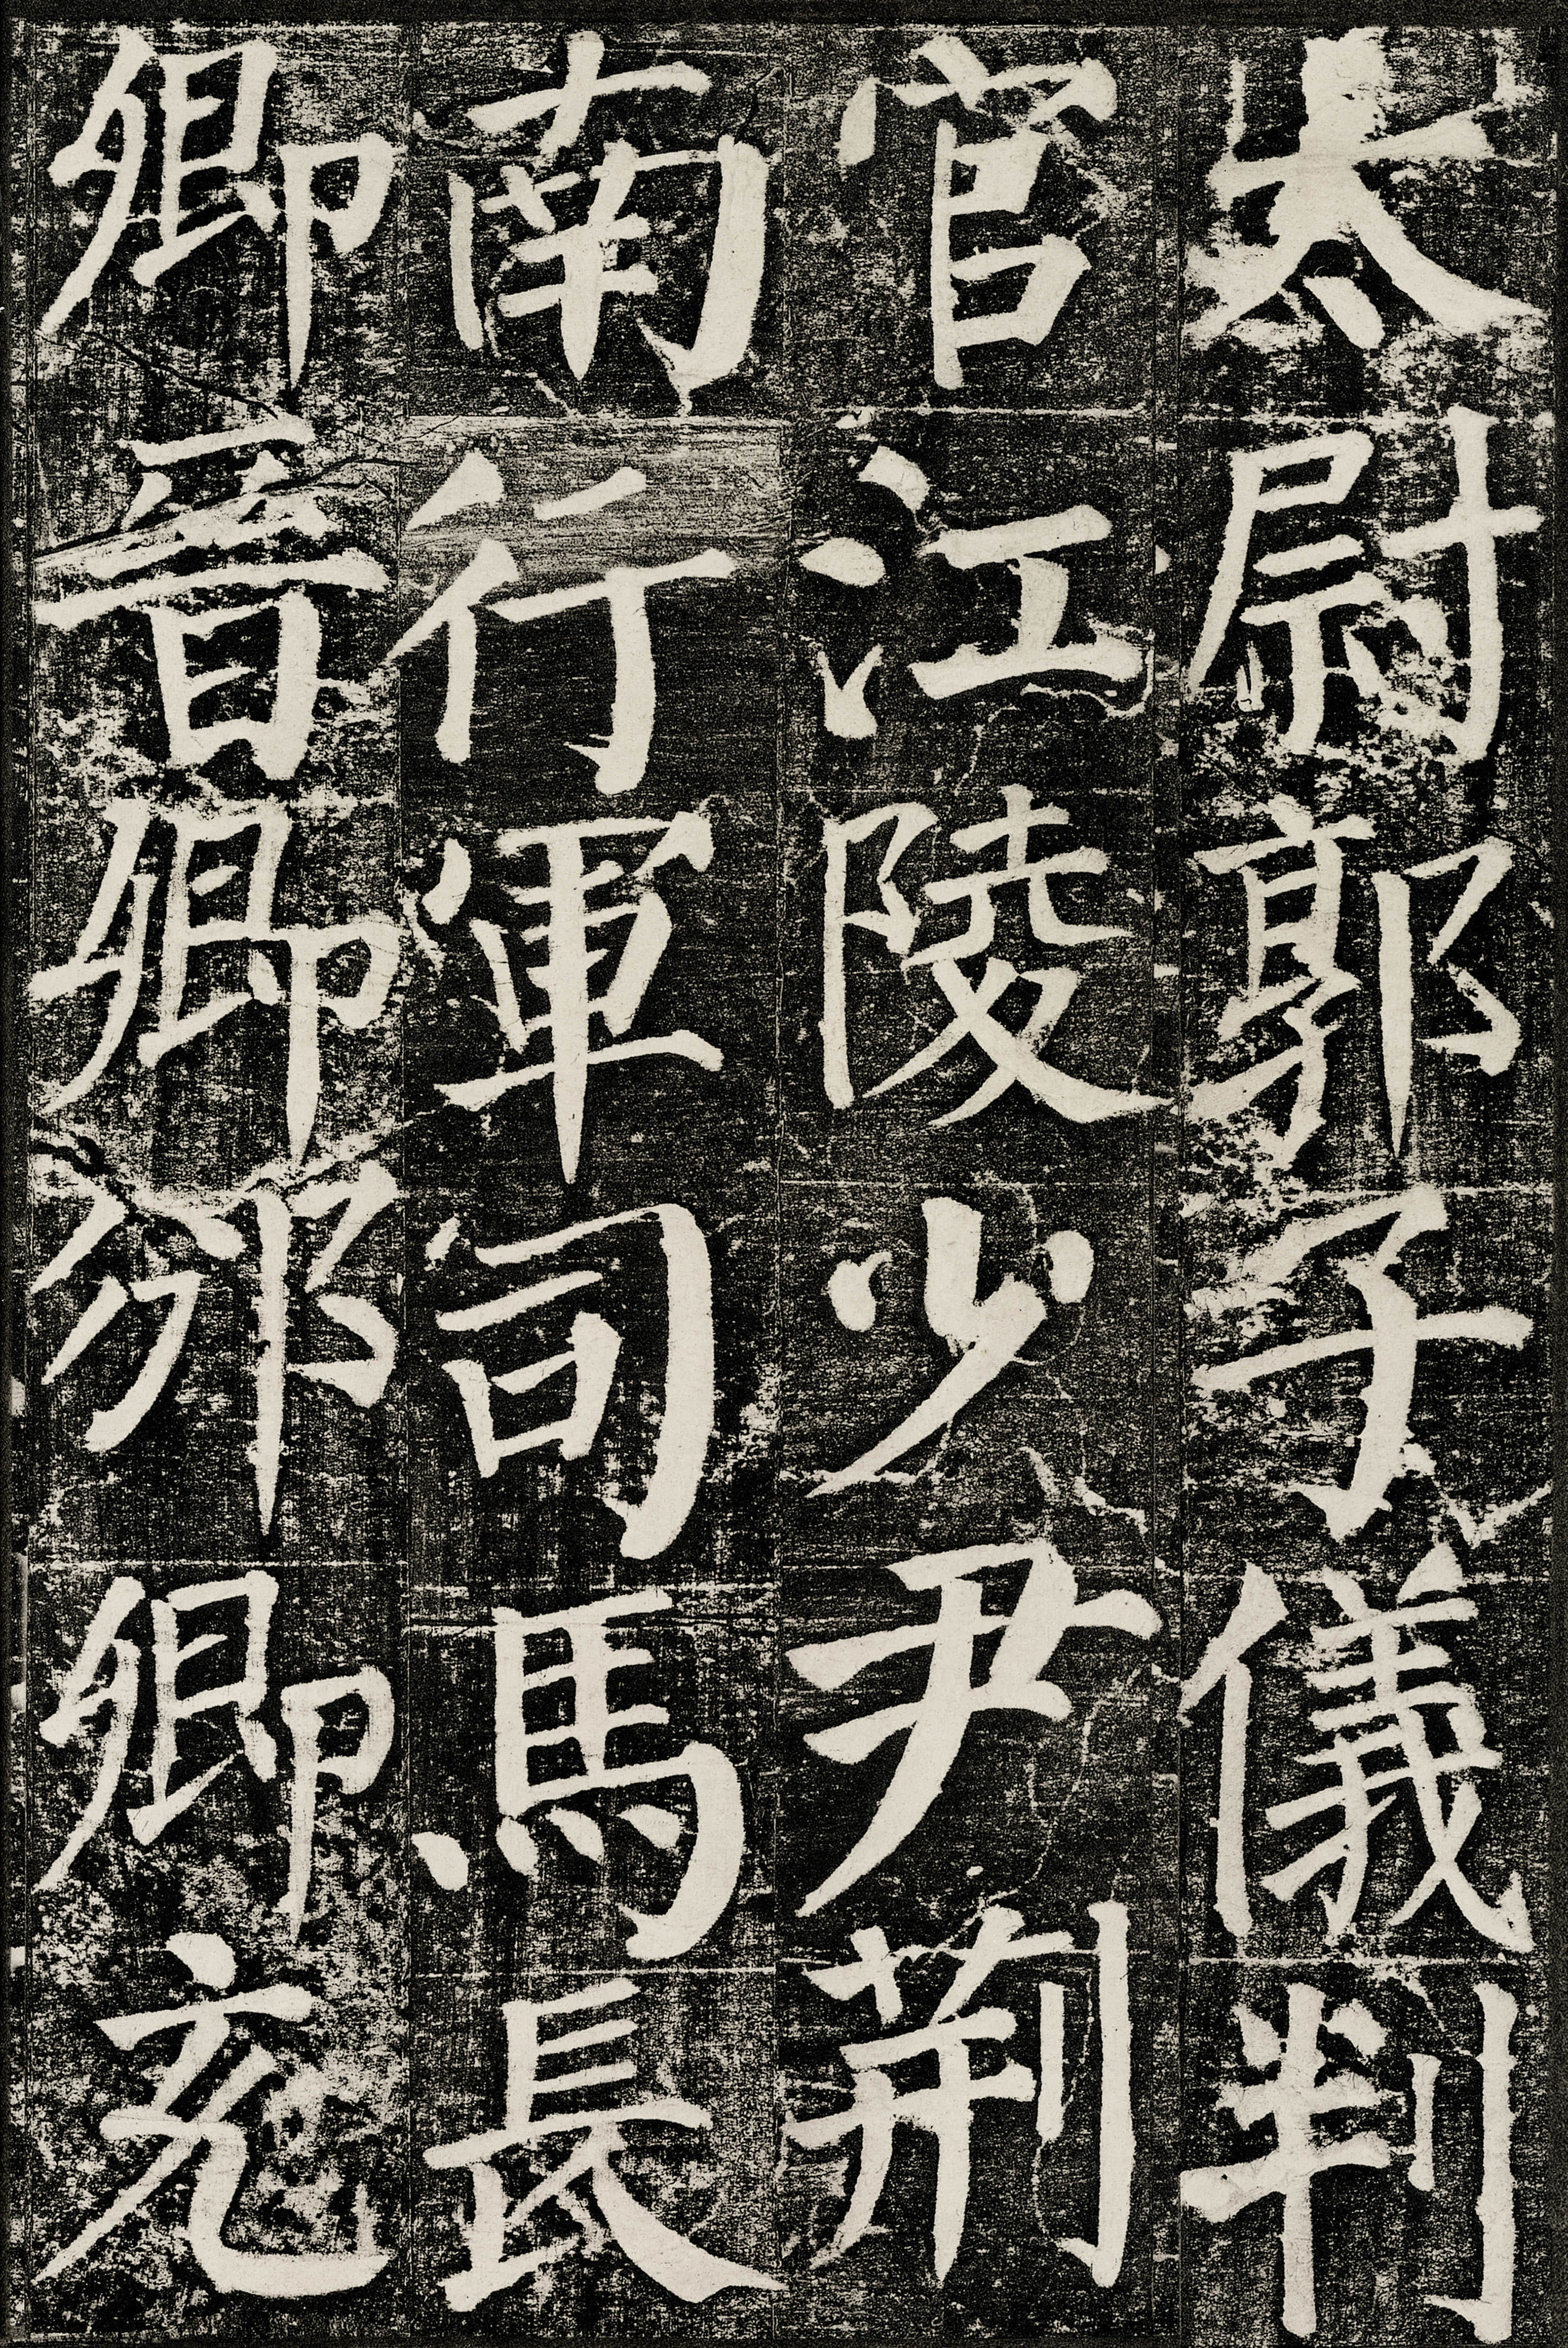 太尉郭子儀判
官江陵少尹荆
南行軍司馬長
卿晉卿邠卿充